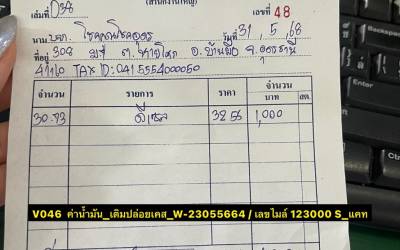 (สำนักงานใหญ่)
เล่มที่ 038 เลขที่ 48
นาม บจก. โชคถาวรโชคอุดร วันที่ 31, 5, 68
ที่อยู่ 308 ม.4 ต. อ. บ้านผือ จ. อุดรธานี
TAX ID: 0415554000050
จำนวน รายการ ราคา จำนวน
บาท สต.
30.73 ดีเซล 32.55 1,000
V046 ค่าน้ำมัน_เติมปล่อยเคส_W-23055664 / เลขไมล์ 123000 S_แคท